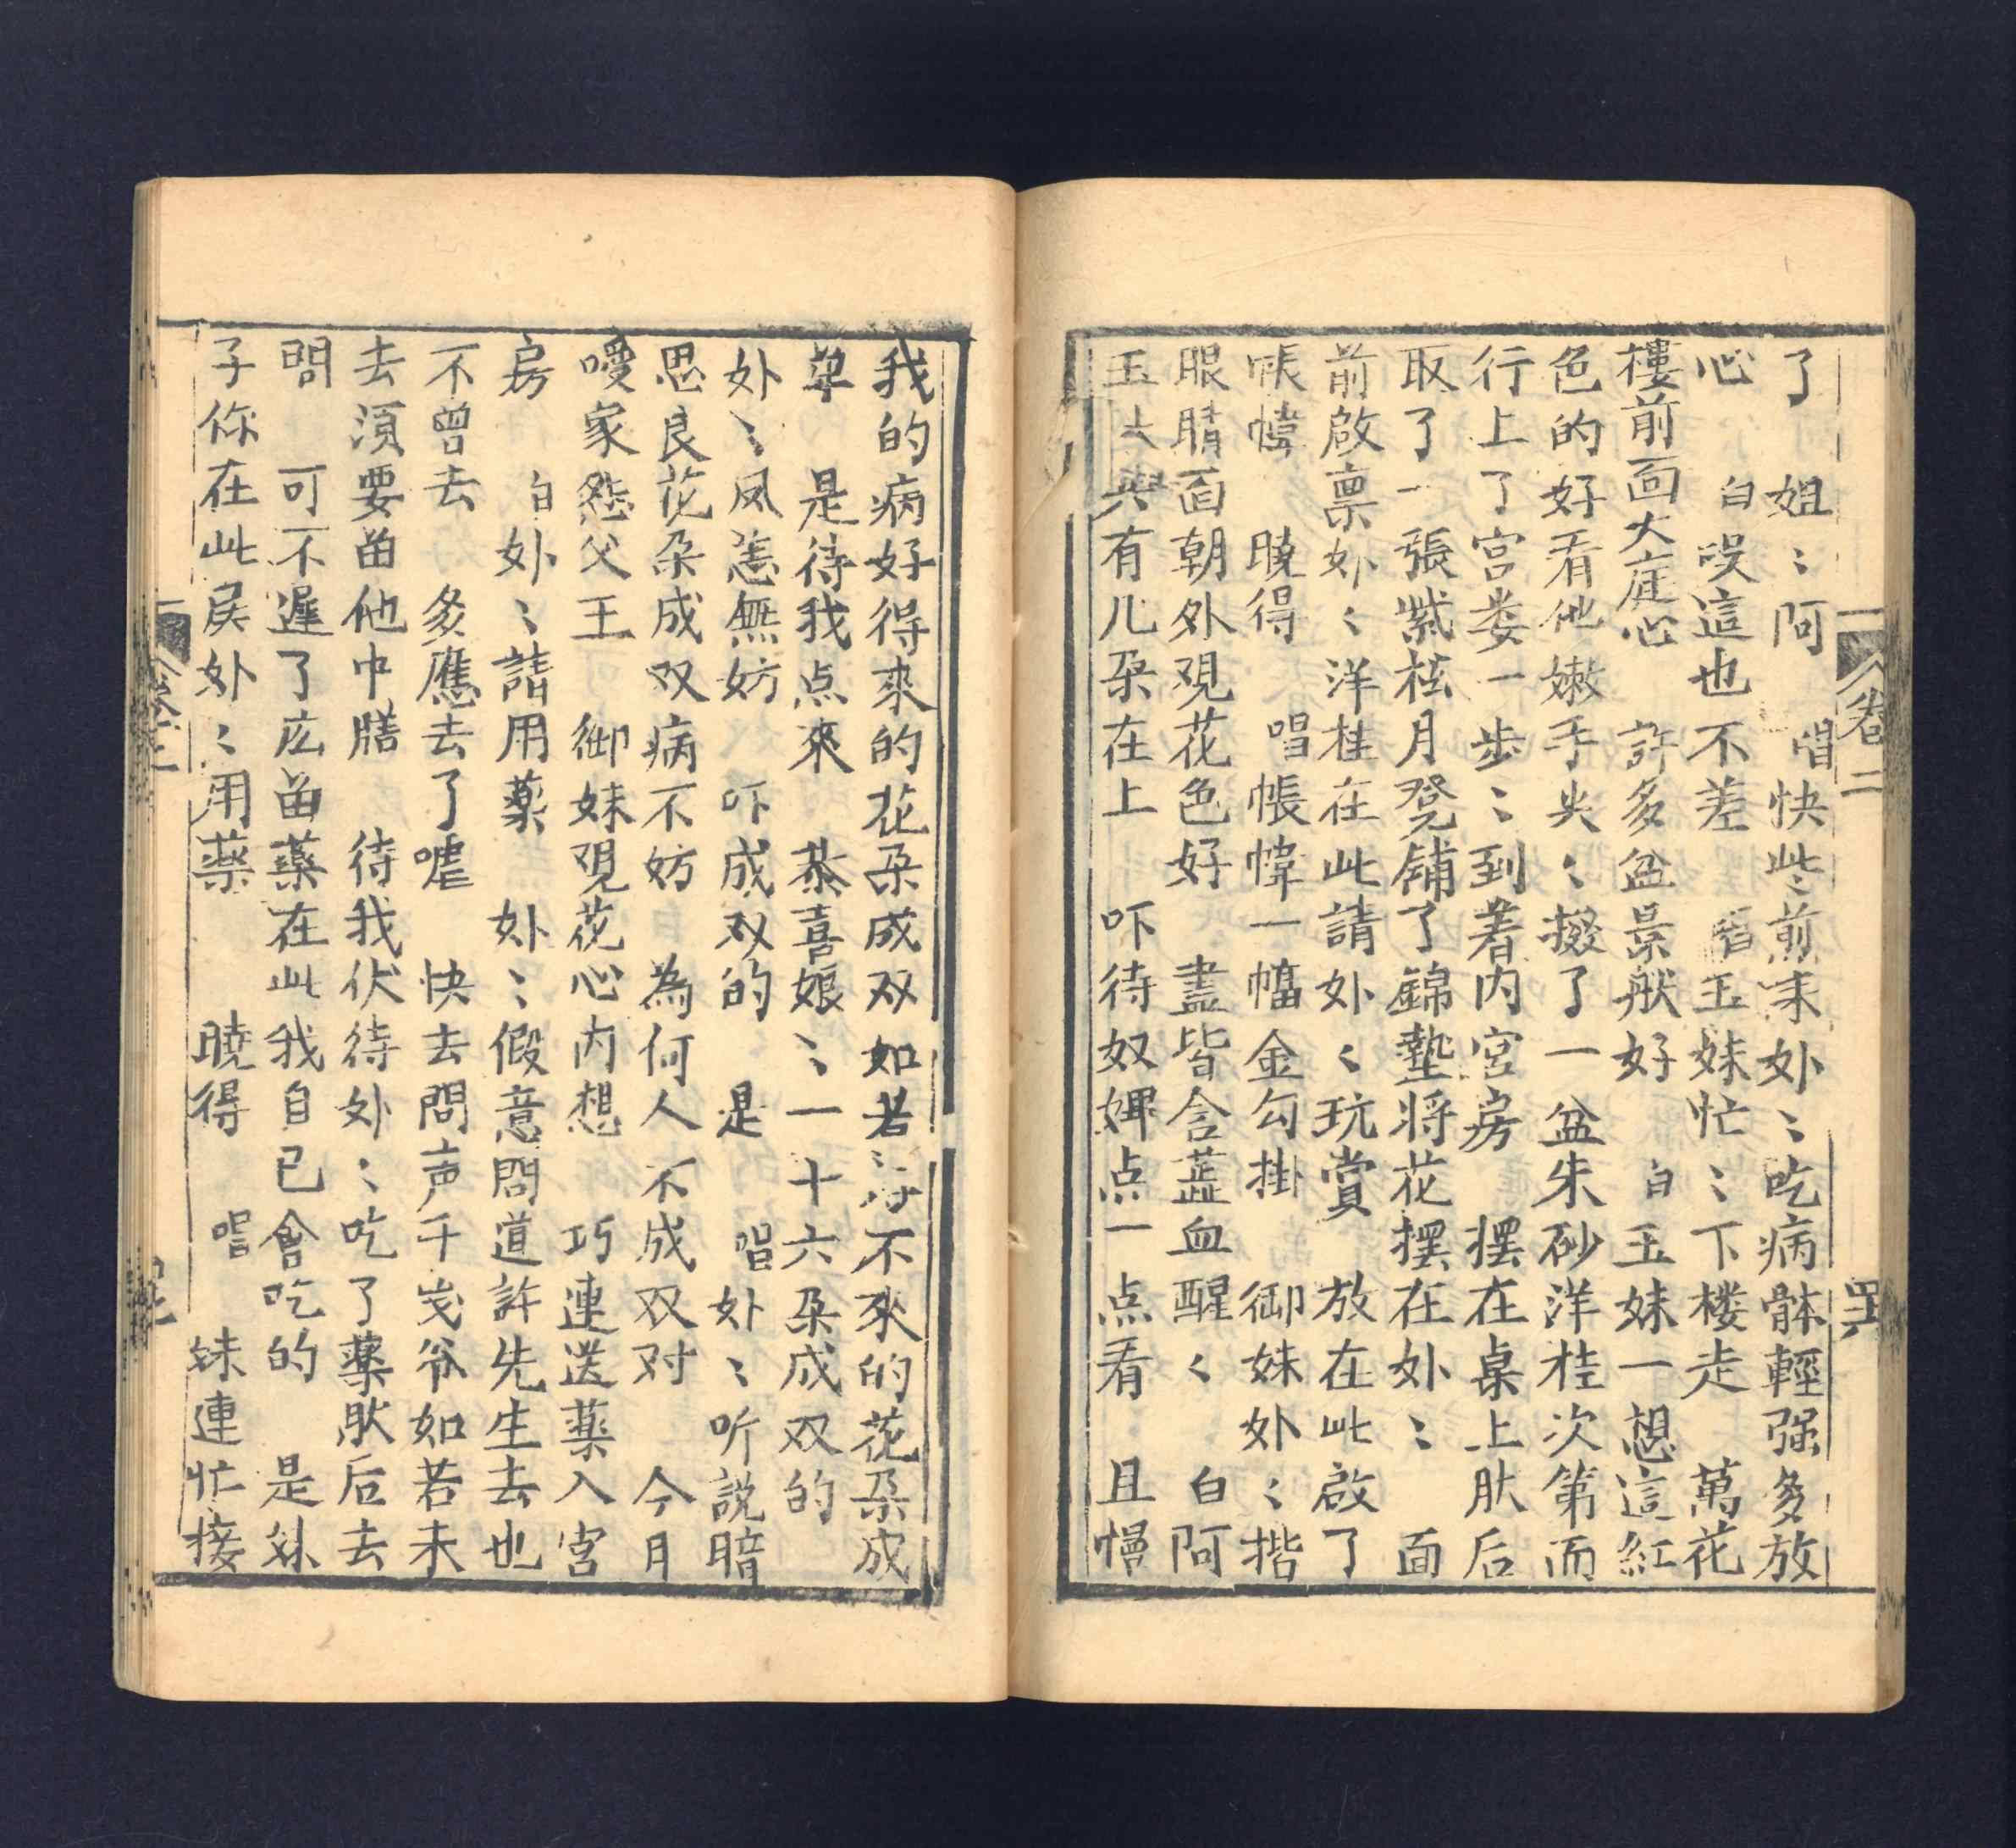 卷二
了　姐〻阿　唱快些煎来外〻吃病體輕强多放
心　白哎這也不差　唱玉妹忙〻下楼走　萬花
樓前面大庭心　許多盆景般好　白玉妹一想這紅
色的好看他嫩手尖〻掇了一盆朱砂洋桂次第而
行上了宫娄一步〻到着内宫房　摆在桌上肰后
取了一張紫桂月凳铺了錦墊将花摆在外〻　面
前啟禀外〻洋桂在此請外〻玩賞　放在此啟了
帳幃　曉得　唱帳幃一幅金勾掛　御妹外〻揩
眼睛面朝外觀花色好　盡皆含蕋血醒〻　白阿
玉妹共有几朵在上　吓待奴婢点一点看　且慢
我的病好得來的花朵成双如若好不來的花朵成
单　是待我点來　恭喜娘〻一十六朵成双的
外〻凤恙無妨　吓成双的　是　唱外〻听説暗
思良花朵成双病不妨　為何人不成双对　今月
噯家怨父王　御妹觀花心内想　巧連送薬入宫
房　白外〻請用薬　外〻假意問道許先生去也
不曾去　多應去了嘘　快去問声千岁爷如若未
去須要畄他中膳　待我伏待外〻吃了薬肰后去
問　可不遲了広畄薬在此我自已會吃的　是外
子你在此矦外〻用薬　曉得　唱　妹連忙接